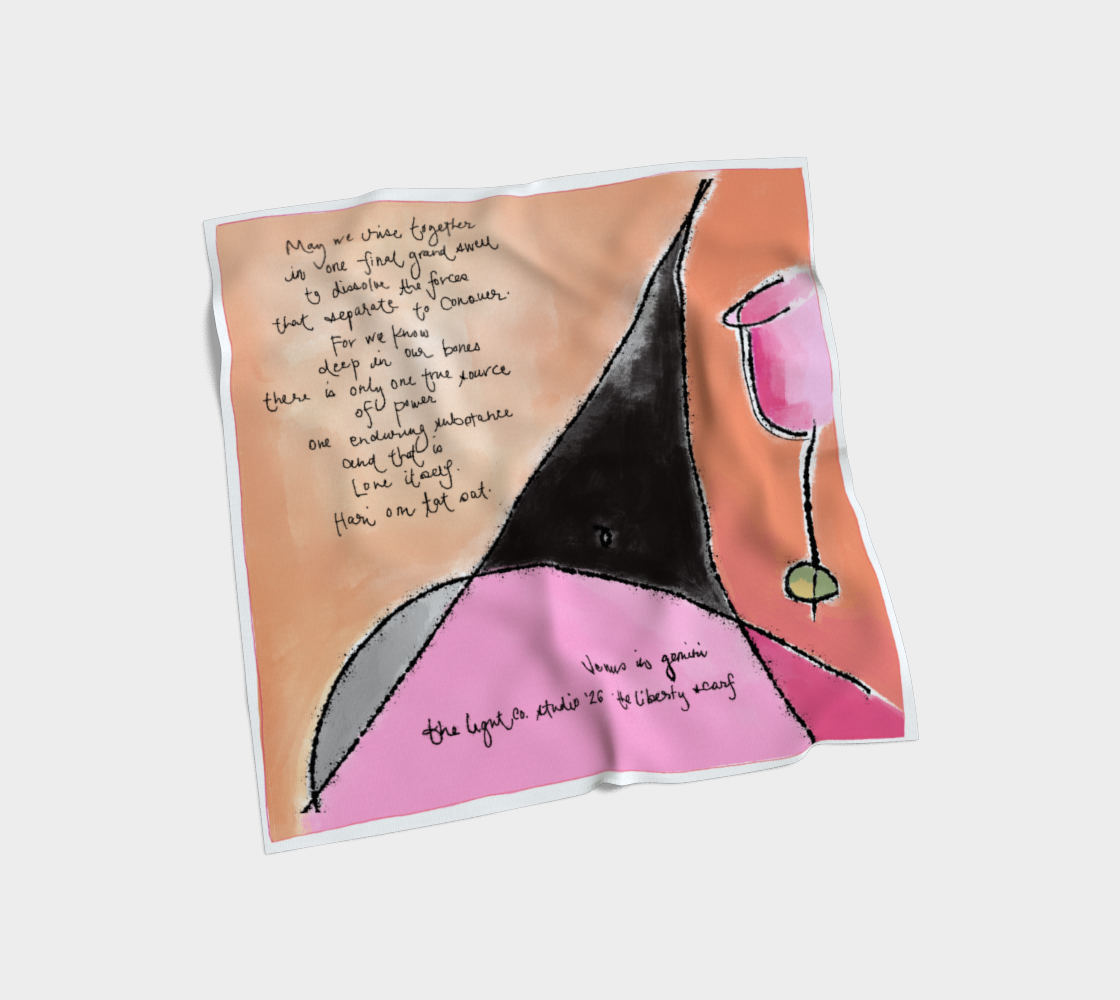 May we rise together
in one final grand swell
to dissolve the forces
that separate to conquer.
For we know
deep in our bones
there is only one true source
of power
one enduring substance
and that is
Love itself.
Hari om tat sat.
Venus in gemini
the light co. studio '26 the liberty scarf